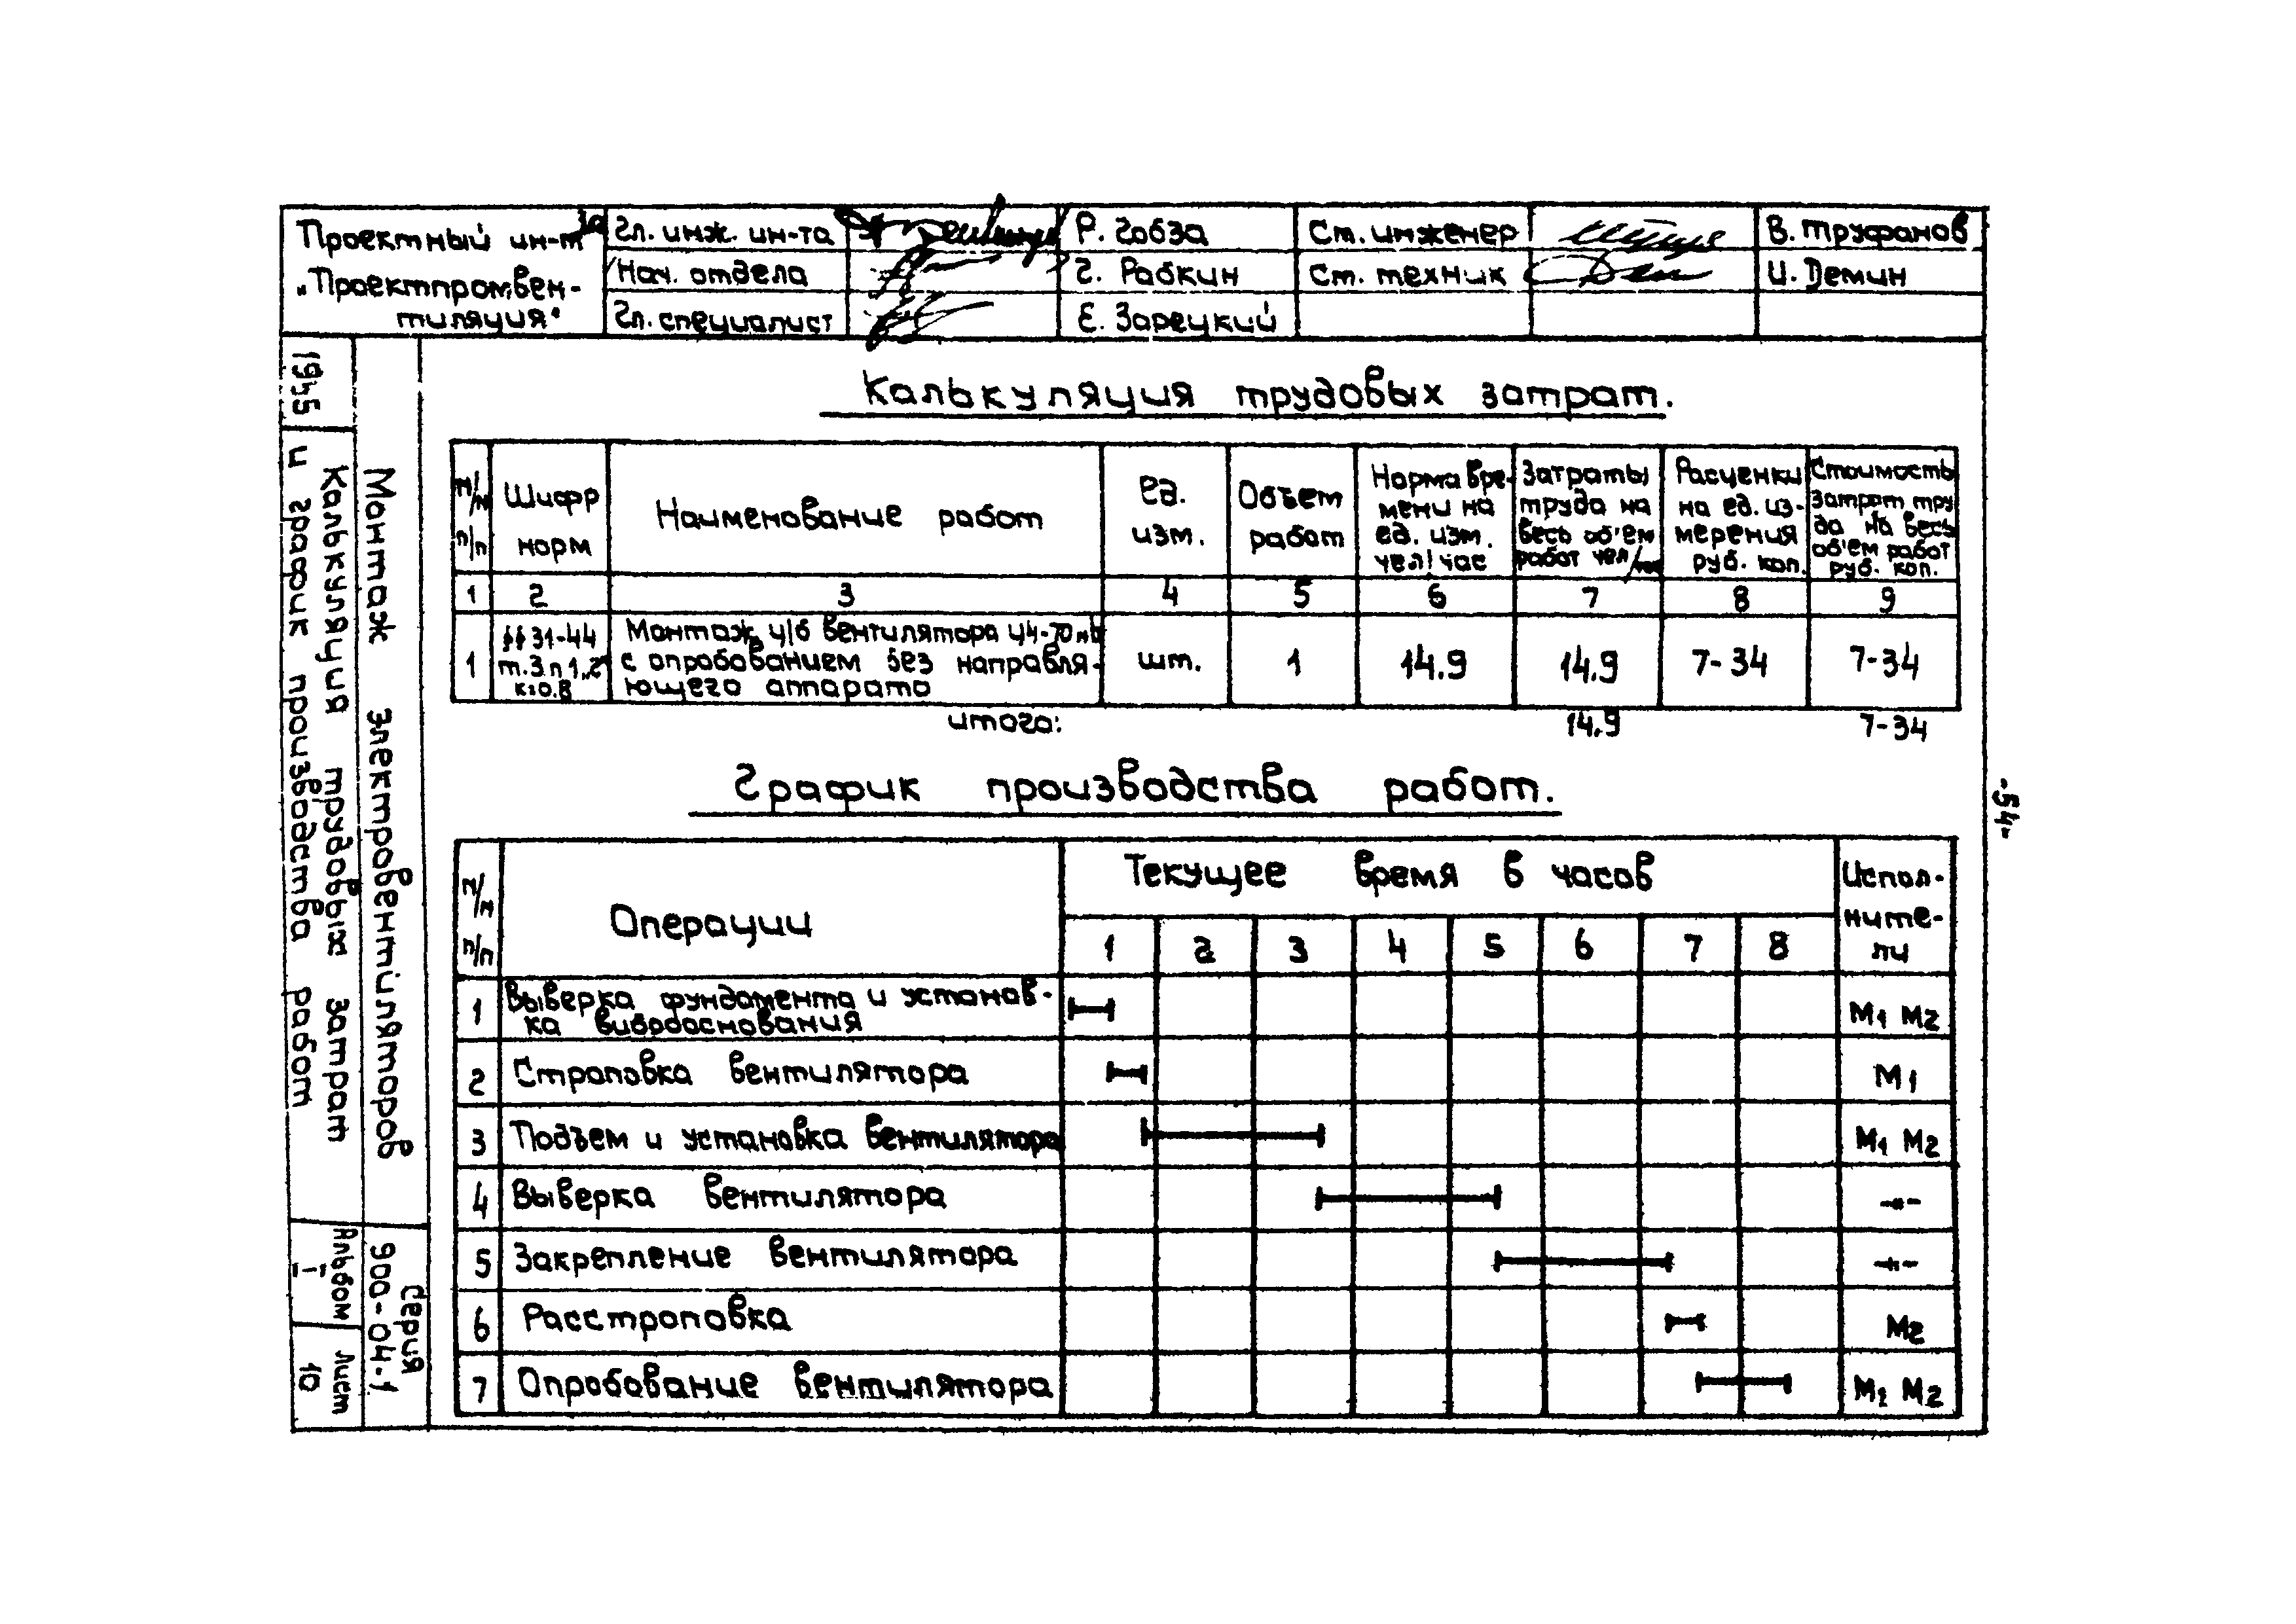 Проектный ин-т
„Проектпромвен-
тиляция"
Гл. инж. ин-та
Р. Гобза
Ст. инженер
В. Труфанов
Нач. отдела
Г. Рабкин
Ст. техник
И. Демин
Гл. специалист
Е. Зарецкий
Калькуляция трудовых затрат.
№/№
п/п
Шифр
норм
Наименование работ
ед.
изм.
Объем
работ
Норма вре-
мени на
ед. изм.
чел/час
Затраты
труда на
весь об'ем
работ чел/час
Расценки
на ед. из-
мерения
руб. коп.
Стоимость
затрат тру
да на весь
об'ем работ
руб. коп.
1 2 3 4 5 6 7 8 9
1
§§ 31-44
т.3 п 1,2
к=0.8
Монтаж ц/б вентилятора Ц4-70
с опробованием без направля-
ющего аппарата
шт.
1
14.9
14.9
7-34
7-34
итого: 14.9 7-34
График производства работ.
№/№
п/п
Операции
Текущее время в часов
1 2 3 4 5 6 7 8
Испол-
ните-
ли
1 Выверка фундамента и установ-
ка виброоснования
М1 М2
2 Строповка вентилятора М1
3 Подъем и установка вентилятора М1 М2
4 Выверка вентилятора -"-
5 Закрепление вентилятора -"-
6 Расстроповка М2
7 Опробование вентилятора М1 М2
Монтаж электровентиляторов
Калькуляция трудовых затрат
и график производства работ
Серия
900-04-1
Альбом
I
Лист
10
-54-